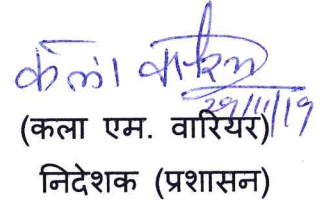 कला वारियर
29/11/19
(कला एम. वारियर)
निदेशक (प्रशासन)